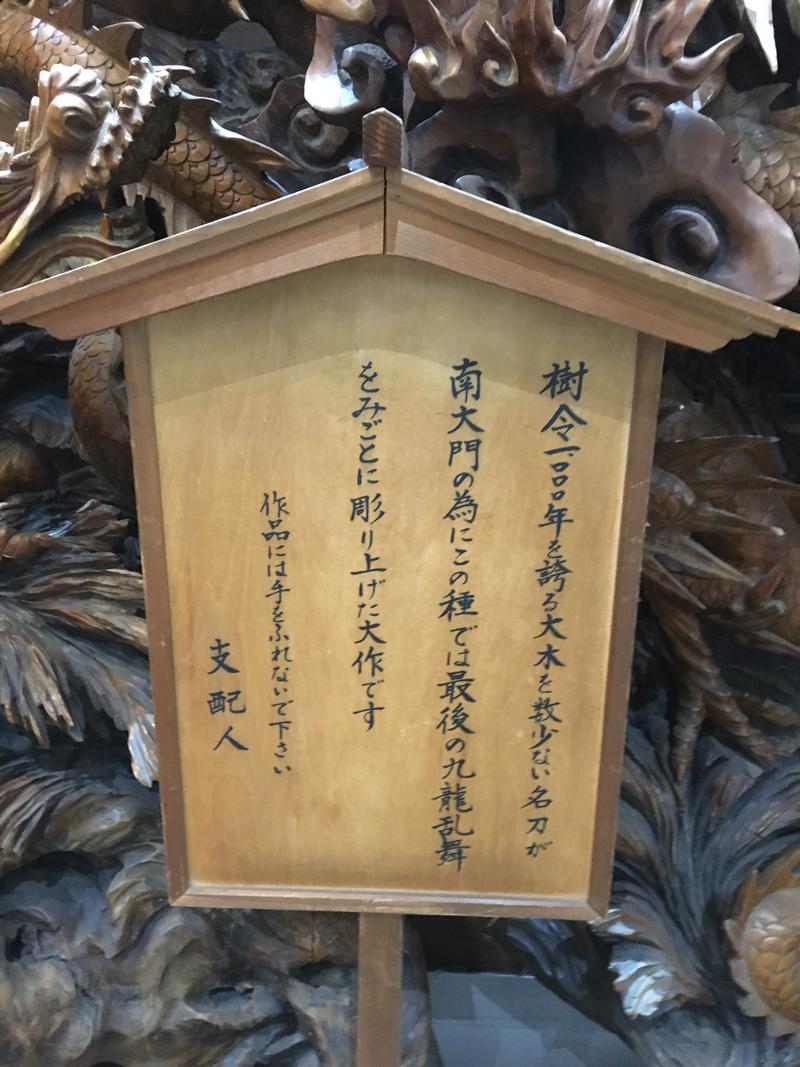 樹令一、〇〇〇年を誇る大木を数少ない名刀が
南大門の為にこの種では最後の九龍乱舞
をみごとに彫り上げた大作です
作品には手をふれないで下さい
支配人